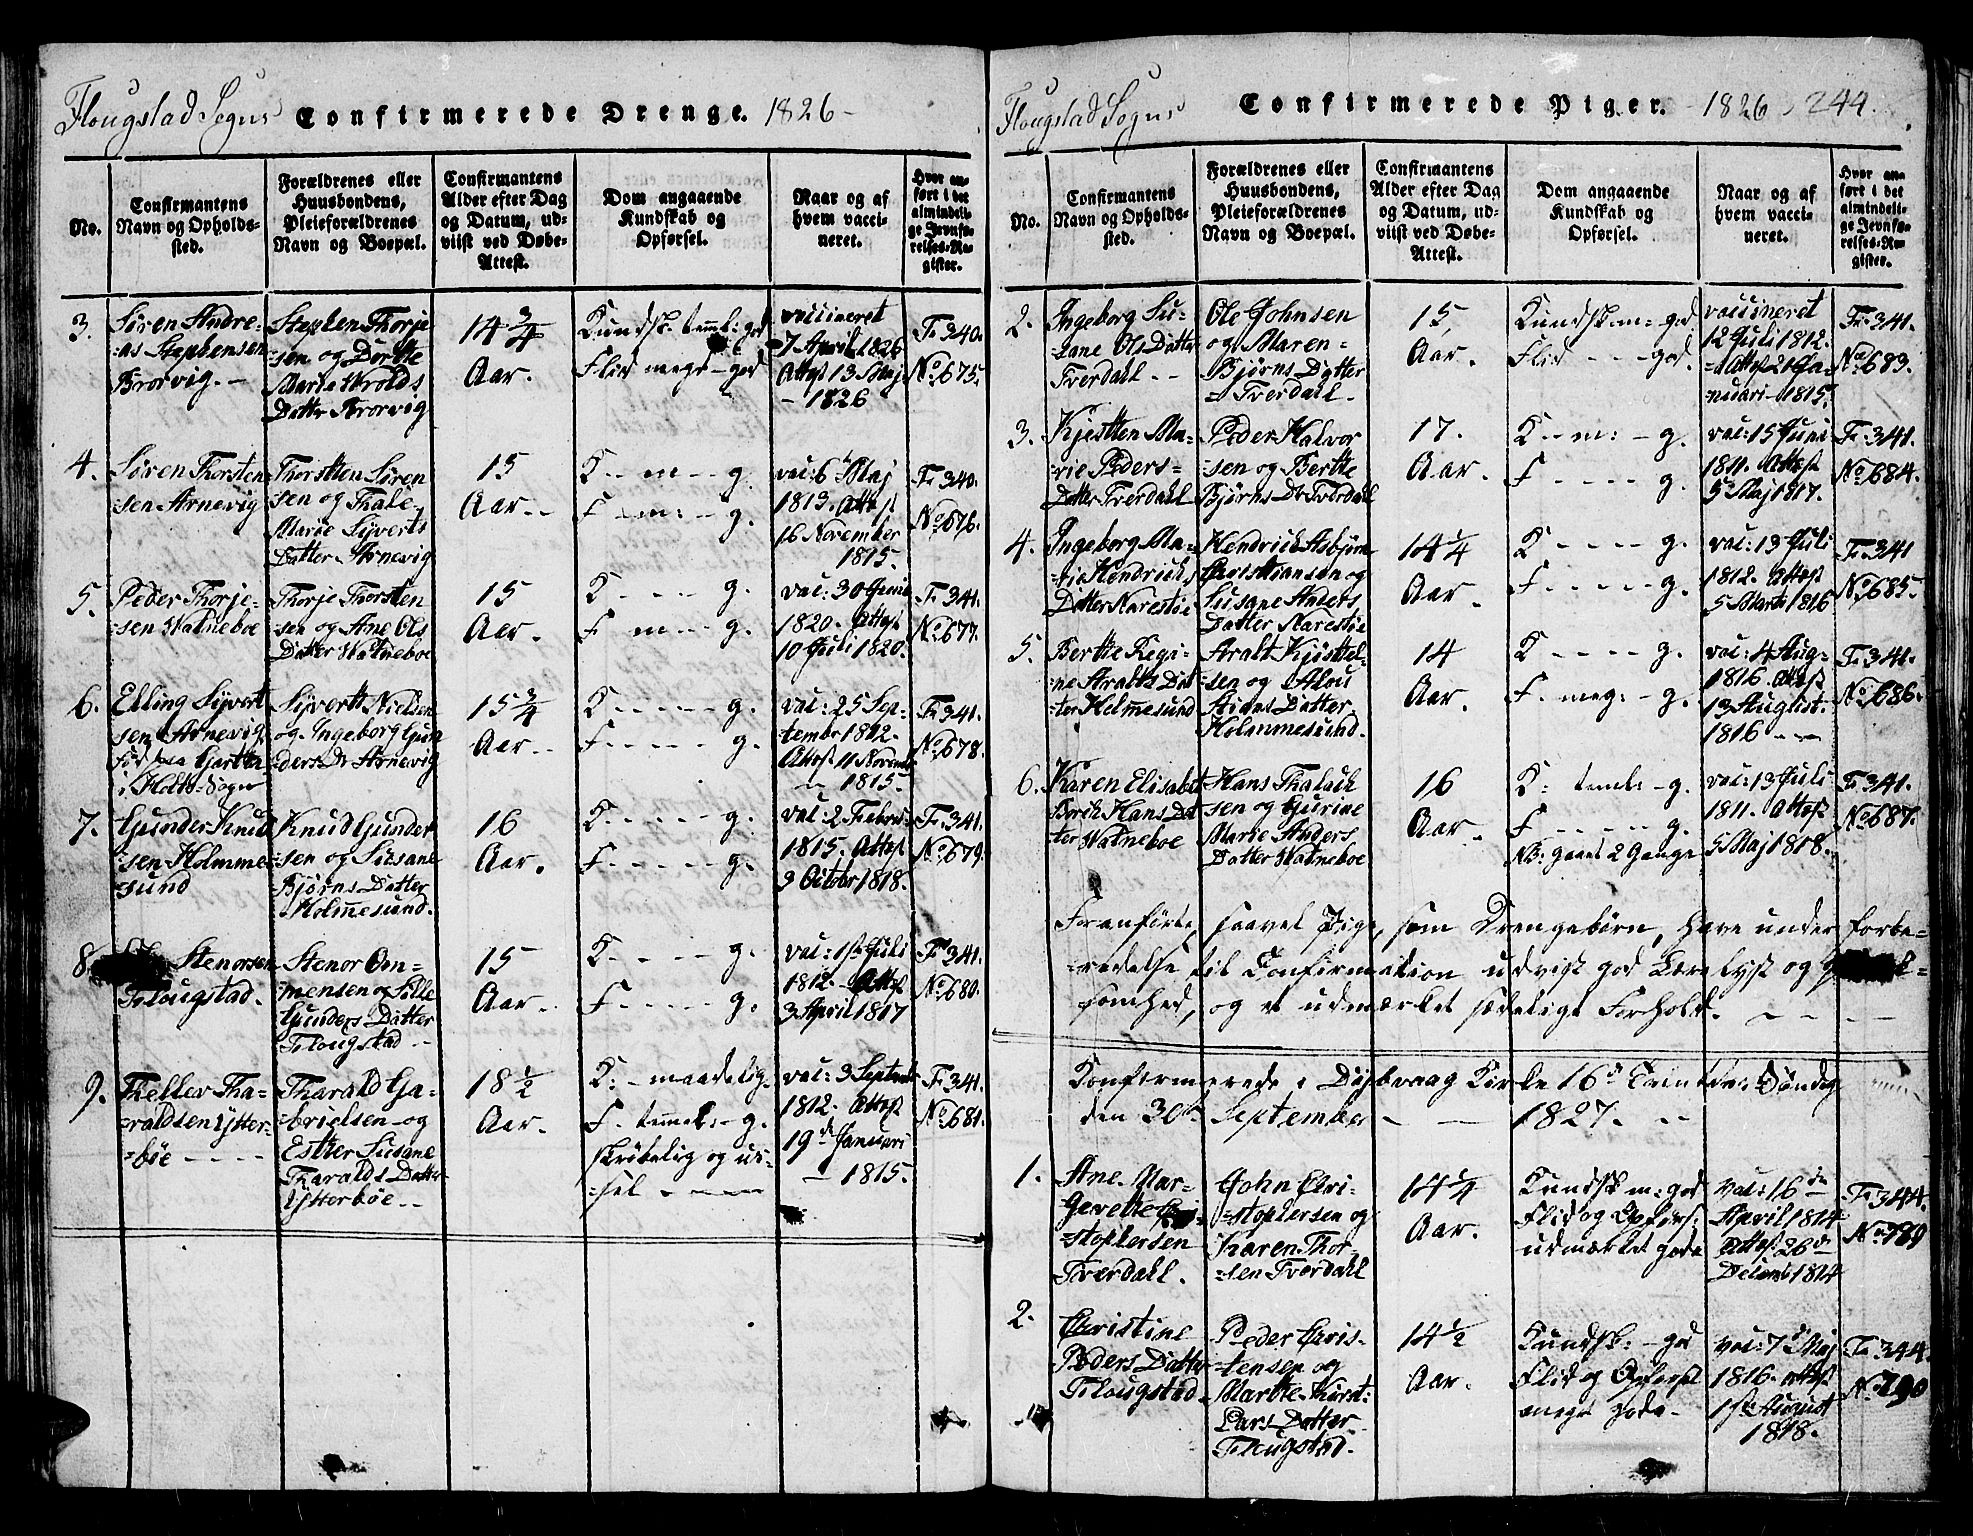 Flougstad Sogns Confirmerede Drenge. 1826
No.
Confirmantens
Navn og Opholds-
sted.
Forældrenes eller
Huusbondens,
Pleieforældrenes
Navn og Boepæl.
Confirmantens
Alder efter Dag
og Datum, ud-
viist ved Døbe-
Attest.
Dom angaaende
Kundskab og
Opførsel.
Naar og af
hvem vacci-
neret.
Hvor an-
ført i det
almindeli-
ge Jevnfø-
relses-Re-
gister.
3.
Søren Andre-
-as Stephensen
Brorvig. -
Stephen Thorje
-sen og Dorthe
Marie Wrolds
Datter Brorvig
14 3/4
Aar.
Kundsk. teml: god
Flid meget - god
vaccineret
7 April 1826
Attest 13 Maj
- 1826
F. 340.
No 675.
4.
Søren Thorsten
-sen Arnevig
Thorstten Søren
-sen og Thale
Marie Syverts
Datter Arnevig
15
Aar. -
K - - m - - g.
F - m: - - g.
vac: 6 Maj
1813. Attest
16 November
1815.
F. 340.
No 676.
5.
Peder Thorje-
-sen Walneboe
Thorje Thorsten
-sen og Ane Ols
Datter Walneboe
15
Aar.
K - - - - g.
F m - - g.
vac: 30 Juni
1820. Attest
10 Juli 1820.
F. 341.
No 677.
6.
Elling Syvert
-sen Arnevig
i Holts Sogn
Syvert Nielsen
og Ingeborg Gun
ders Dr Arnevig
15 3/4
Aar.
K - - - - - g.
F - - - - g.
vac: 25 Sep-
tember 1812.
Attest 11 Novemb
- 1815.
F. 341.
No 678.
7.
Gunder Knud
-sen Holmme
sund
Knud Gunder
-sen og Susane
Bjørns Datter
Holmesund.
16
Aar.
K - - - - - g.
F - - - - g.
vac: 2 Febru-
1815. Attest
9 Octobr 1818.
F. 341.
No 679.
8.
Stenorsen
Flougstad.
Stenor Om-
mensen og Sille
Gunders Datter
Flougstad -
15
Aar.
K - - - - g.
F - - - - g.
vac: 1st Juli
1812. Attest
3 April 1817
F. 341.
No 680.
9.
Theller Tha-
raldsen Ytter-
-bøe - - - -
Tharald Ga-
-brielsen og
Esther Susane
Tharalds Datter
Ytterbøe - -
18 1/2
Aar.
K: - maadelig.
F. temel: - g.
skrøbelig og us-
-sel - - - -
vac: 3 Septemb
1812. Attest
19de Januari
- 1815.
F. 341.
No 681.
Flougstad Sogns Confirmerede Piger. - 1826 244.
No.
Confirmantens
Navn og Opholds-
sted.
Forældrenes eller
Huusbondens,
Pleieforældrenes
Navn og Boepæl.
Confirmantens
Alder efter Dag
og Datum, ud-
viist ved Døbe-
Attest.
Dom angaaende
Kundskab og
Opførsel.
Naar og af
hvem vacci-
neret.
Hvor an-
ført i det
almindeli-
ge Jevnfø-
relses-Re-
gister.
2.
Ingeborg Su-
sane Ols Datter
Tverdall. - -
Ole Johnsen
og Maren -
Bjørns Datter
- Tverdall.
15,
Aar.
Kundsk. m: - god
Flid - - - god.
vaccineret
12 Juli 1812.
-Attest 21 Ja-
nuari - 1815.
F. 341.
No 683.
3.
Kjestten Ma-
rie Peders-
Datter Tverdall
Peder Halvor
-sen og Berthe
Bjørns Dr Tverdall
17.
Aar.
K - - m: - g.
F - - - - g.
vac: 15 Juni
1811. Attest
5 Maj 1817.
F. 341.
No 684.
4.
Ingeborg Ma-
rie Hendrichs
Datter Narestøe
Hendrich Asbjørn
Christiansen og
Susane Anders
Datter Narestøe
14 1/4
Aar.
K - - - - g.
F - - - - g.
vac: 13 Juli
1812. Attest
5 Marts 1816
F. 341
No 685.
5.
Berthe Regi-
ne Aralts Dat
-ter Holmesund
Aralt Kjøstel-
-sen og Alou
Stians Datter
Holmmesund.
14
Aar.
K - - - - g.
F - meg: - g.
vac: 4 Aug-
1816. Attest
13 August.
1816 - -
F. 341.
No 686.
6.
Karen Elisabet
Hans Dat
ter Walneboe
Hans Thaluch
sen og Gurine
Marie Anders
Datter Walneboe
16
Aar.
K: teml: - g.
F - - - - - g.
NB: gaaet 2 Gange
vac: 13 Juli
1811. Attest
5 Maj 1818.
F. 341.
No 687.
Foranførte, saavel Pige, som Drengebørn, have under forbe-
-redelse til Confirmation udvist god Lærelyst og
-somhed, og et udmærket sædeligt Forhold. - - -
Konfirmerede i Dybvaag Kirke 16de Trinitatis Søndag
den 30te September - - 1827. - -
1.
Ane Mar-
grette Chri-
-stophersen
Tverdall.
John Chri-
-stophersen og
Karen Thor-
-sen Tverdall
14 1/4
Aar.
Kundsk m: god
Flid og Opførs:
udmærket gode
vac: 16de
April 1814
Attest 26de
Decemb 1814
F. 344.
No 789
2.
Christine
Peders Datter
Flougstad.
Peder Chris-
-tensen og
Marthe Kirst:
Lars Datter
Flougstad.
14 1/2
Aar.
Kundsk: - god
Flid og Opførsel
meget gode -
vac: 7de Maj
1816. Attest
1ste August
1818.
F. 344.
No 790